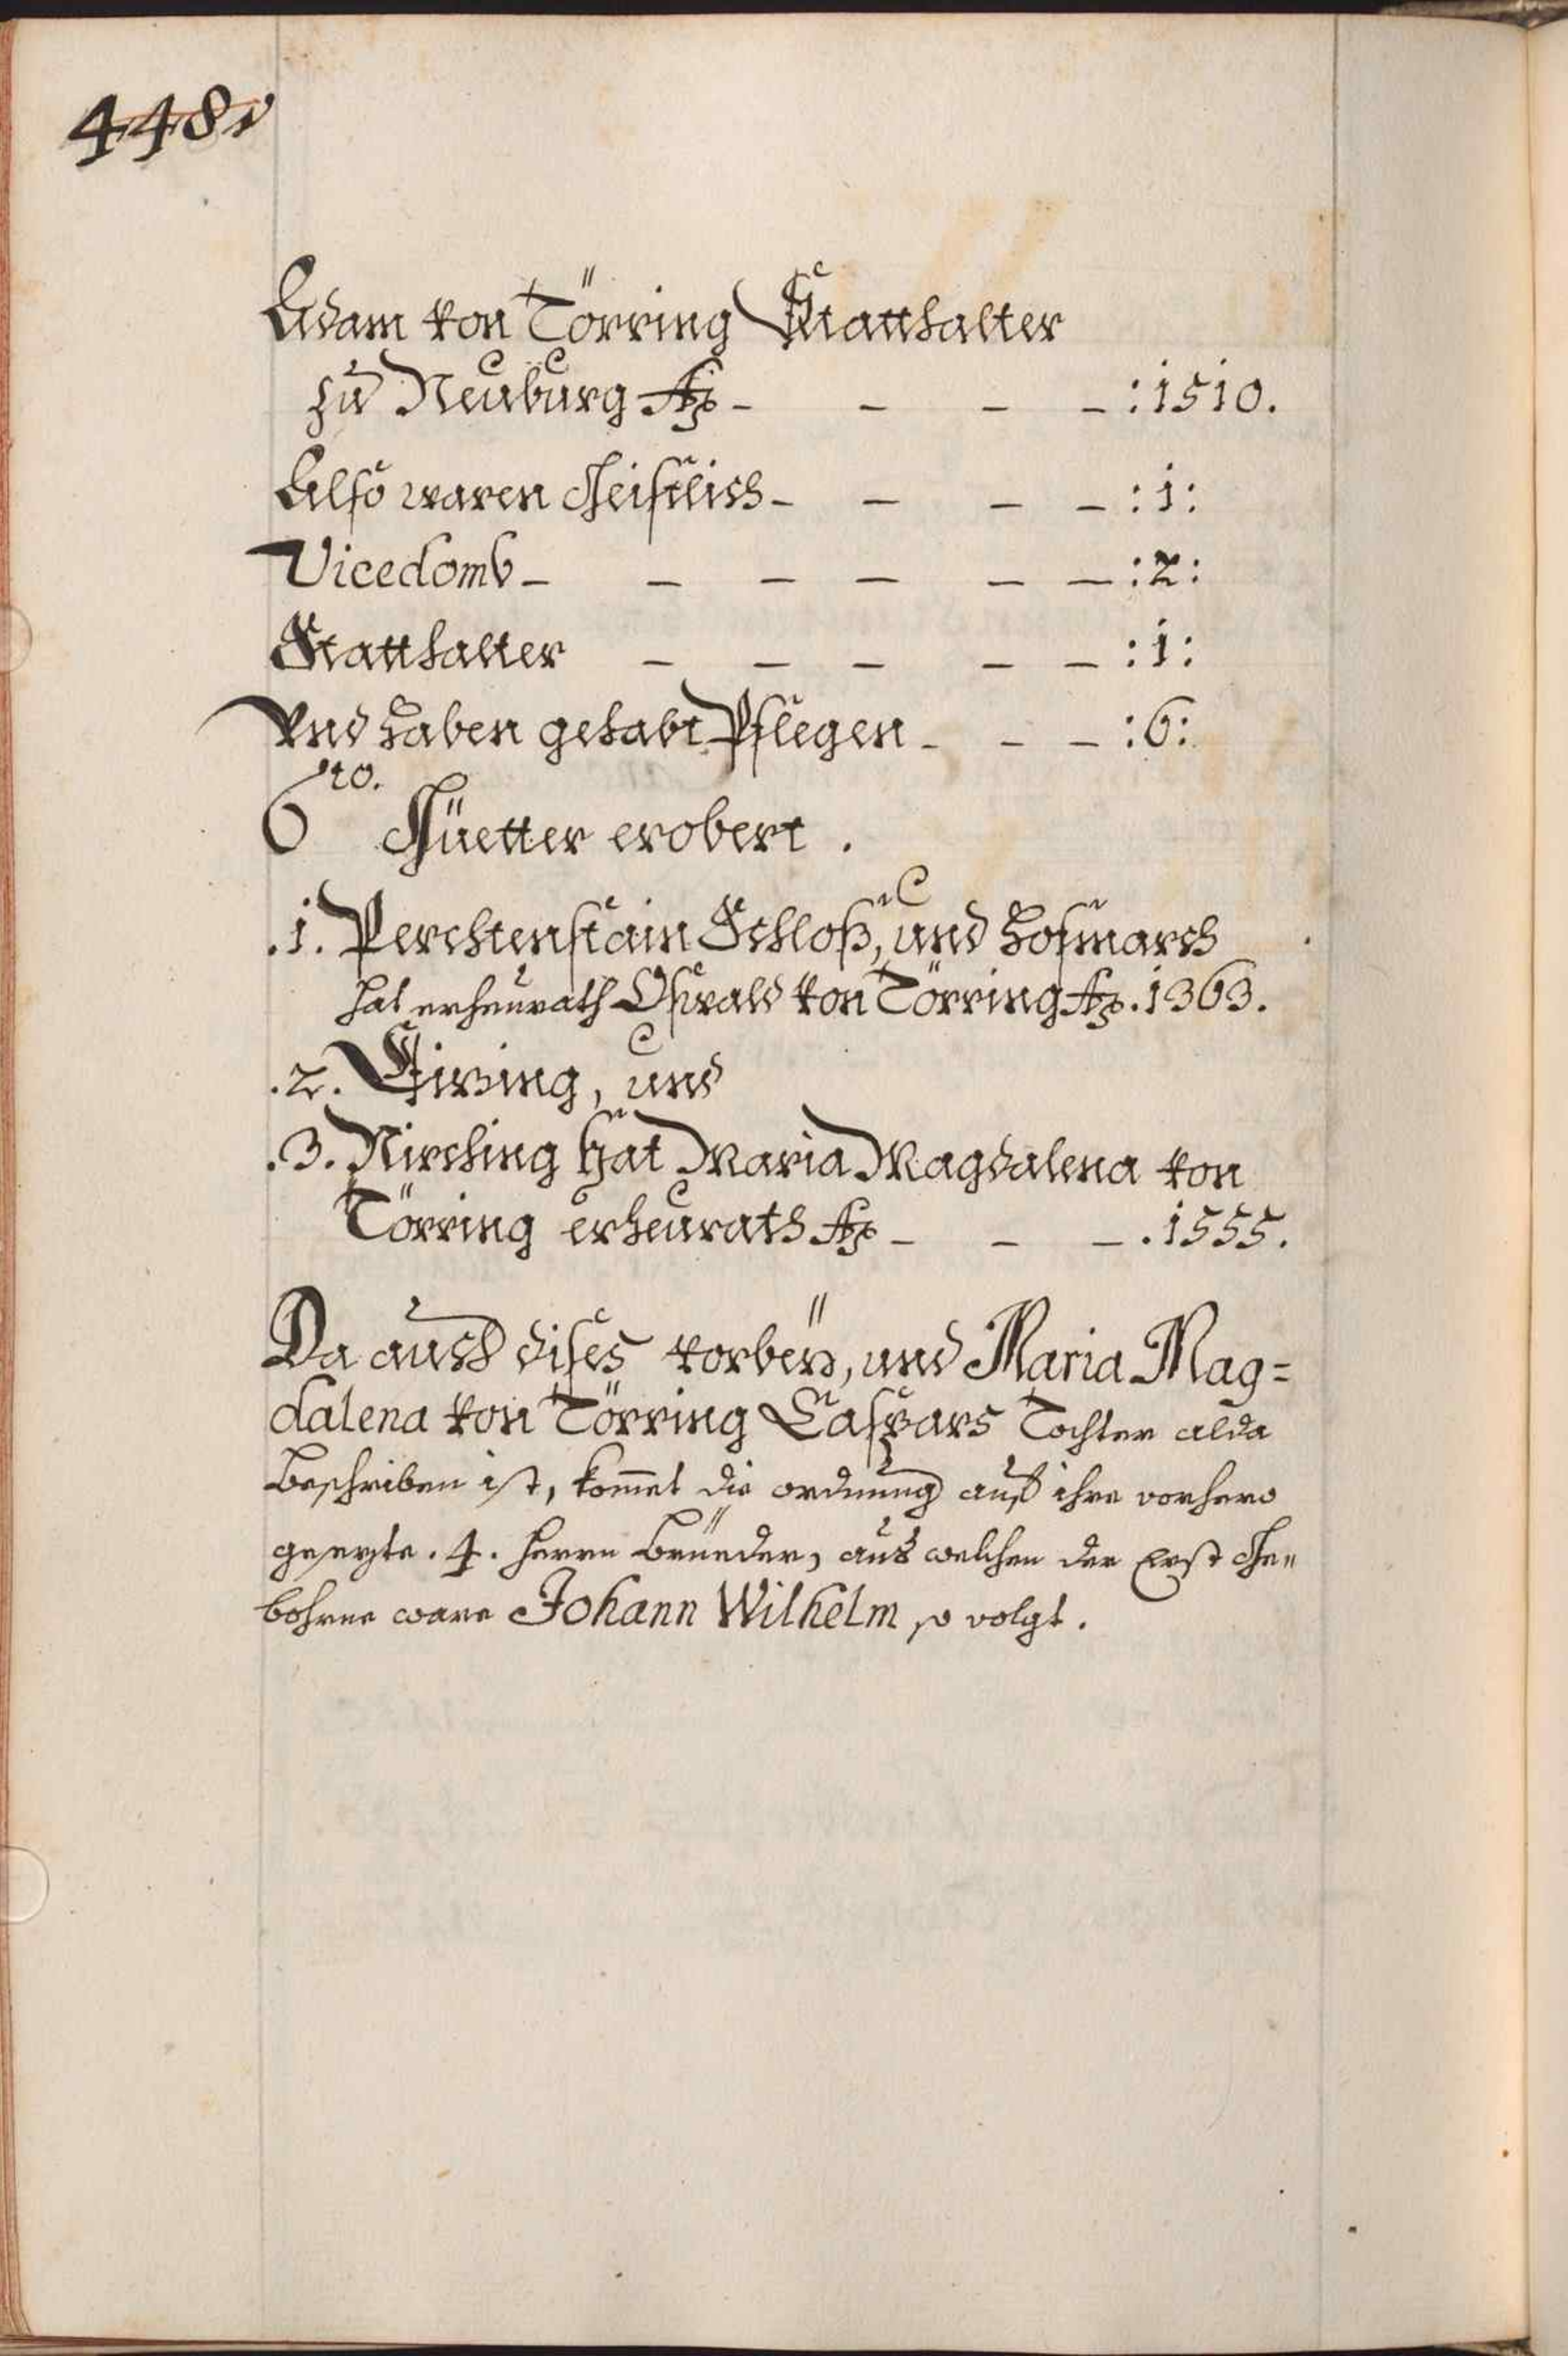 448v
Adam von Törring Statthalter
zu Neuburg Aō - - - - :1510.
Also waren Geistlich - - - - :1:
Vicedomb - - - - - - :2:
Statthalter - - - - - :1:
Vnd haben gehabt Pflegen - - - :6:
6to. Güetter erobert.
.1. Perchtenstain Schloß, und hofmarch
hat erheurath Oswald von Törring Aō. 1363.
.2. und
.3. Nirching hat Maria Magdalena von
Törring erheurath Aō - - - .1555.
Da auch dises vorbey, und Maria Mag=
dalena von Törring Caspars Tochter alda
beschriben ist, kommet die ordnung auf ihre vorhero
gesezte .4. herrn Brüeder, aus welchen der Erst Ge=
bohrne ware Johann Wilhelm so volgt.